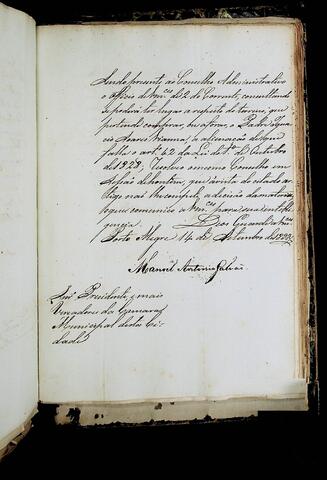 Sendo presente ao Conselho Administrativo
o officio de Vmces de 2 do Corrente, consultando
se poderá ter lugar a respeito do terreno, que
pertende comprar, ou aforar, o Padre Ignacio
Soares Vianna, a alienação de que
falla o art. 42 da Lei de 1º de Outubro
de 1828; Resolveo o mesmo Conselho em
Sessão de hontem, que á vista do citado ar-
tigo não lhe compete a decisão da materia
o que communico a Vmces para sua intelli-
gencia. Deos Guarde a Vmces
Porto Alegre 14 de Setembro de
Manoel Antonio Galvão
Snrs Presidente, e mais
Vereadores da Camara
Municipal desta Ci-
dade